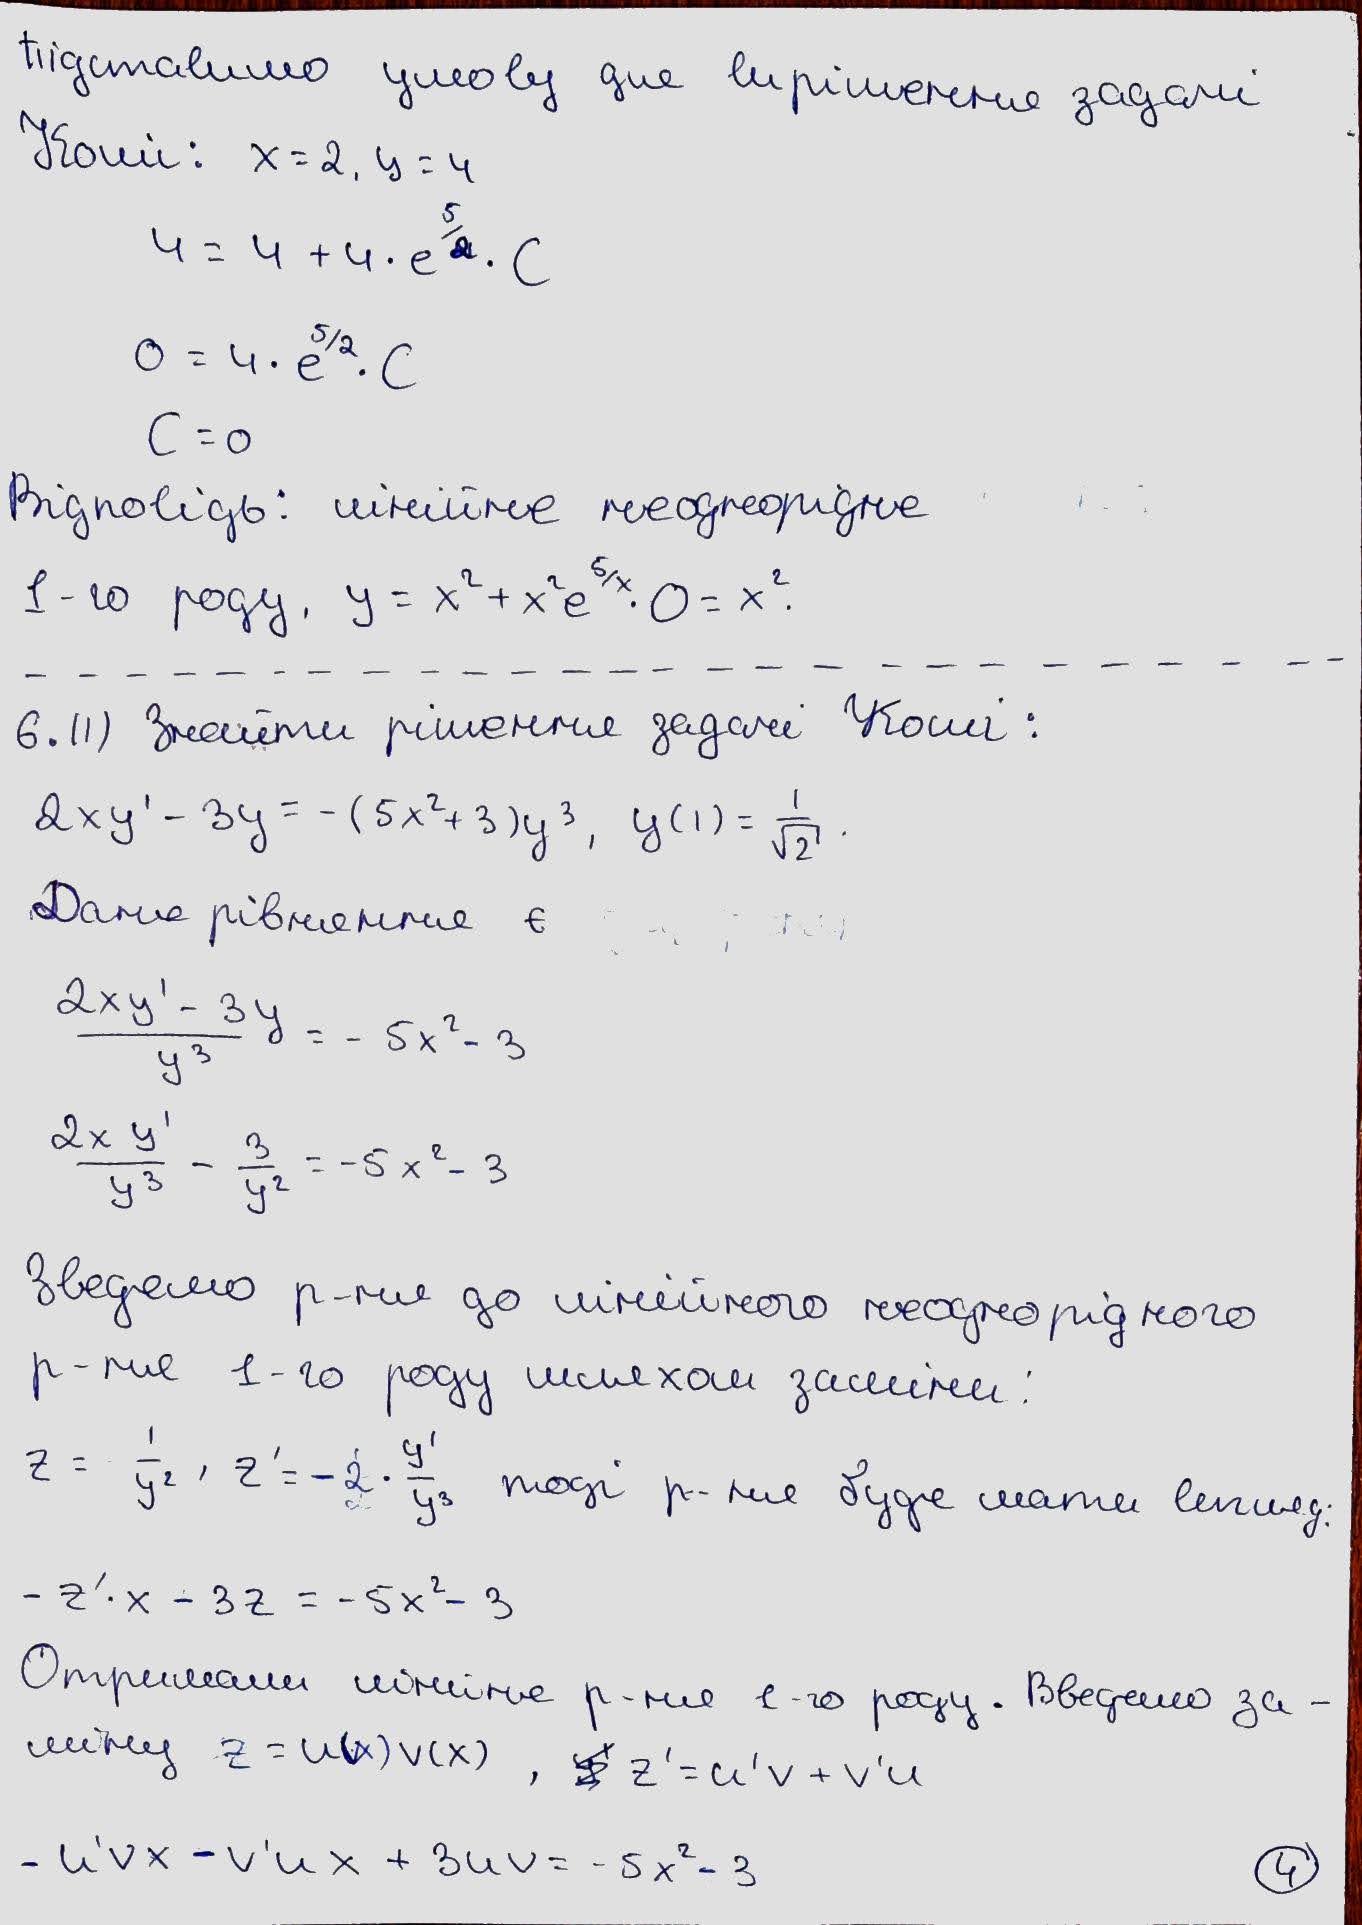 Підставимо умову для вирішення задачі
Коші: x = 2, y = 4
4 = 4 + 4 · e^{5/2} · C
0 = 4 · e^{5/2} · C
C = 0
Відповідь: лінійне неоднорідне
1-го роду, y = x² + x²e^{5/x} · 0 = x².
6.(1) Знайти рішення задачі Коші:
2xy' - 3y = -(5x² + 3)y³, y(1) = 1/√2.
Дане рівняння є
(2xy' - 3y)/y³ = -5x² - 3
2xy'/y³ - 3/y² = -5x² - 3
Зведемо р-ня до лінійного неоднорідного
р-ня 1-го роду шляхом заміни:
z = 1/y², z' = -2 · y'/y³ тоді р-ня буде мати вигляд:
-z' · x - 3z = -5x² - 3
Отримали лінійне р-ня 1-го роду. Введемо за-
міну z = u(x)v(x), z' = u'v + v'u
-u'vx - v'ux + 3uv = -5x² - 3
4